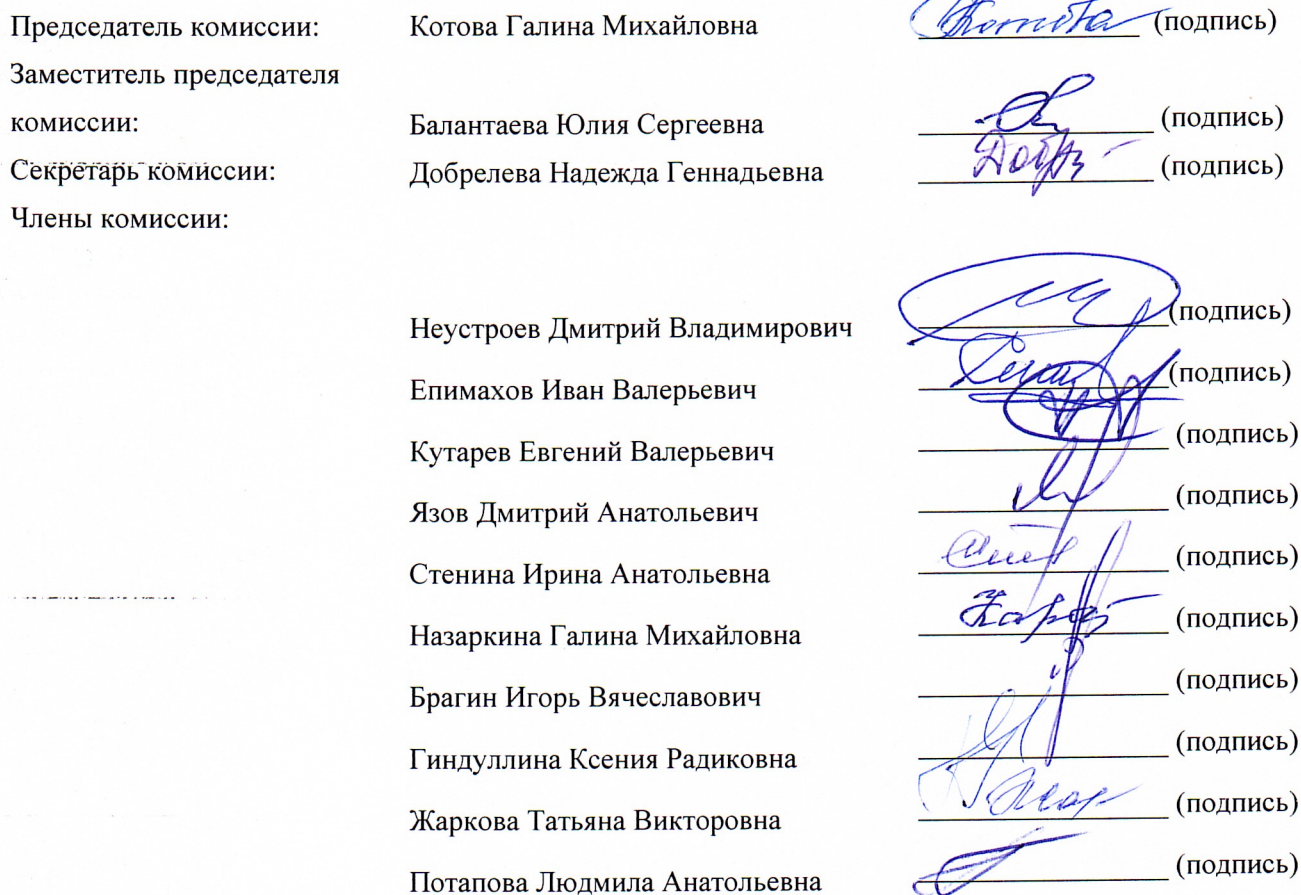 Председатель комиссии: Котова Галина Михайловна Котова (подпись)
Заместитель председателя
комиссии: Балантаева Юлия Сергеевна (подпись)
Секретарь комиссии: Добрелева Надежда Геннадьевна (подпись)
Члены комиссии:
Неустроев Дмитрий Владимирович (подпись)
Епимахов Иван Валерьевич (подпись)
Кутарев Евгений Валерьевич (подпись)
Язов Дмитрий Анатольевич (подпись)
Стенина Ирина Анатольевна (подпись)
Назаркина Галина Михайловна (подпись)
Брагин Игорь Вячеславович (подпись)
Гиндуллина Ксения Радиковна (подпись)
Жаркова Татьяна Викторовна (подпись)
Потапова Людмила Анатольевна (подпись)